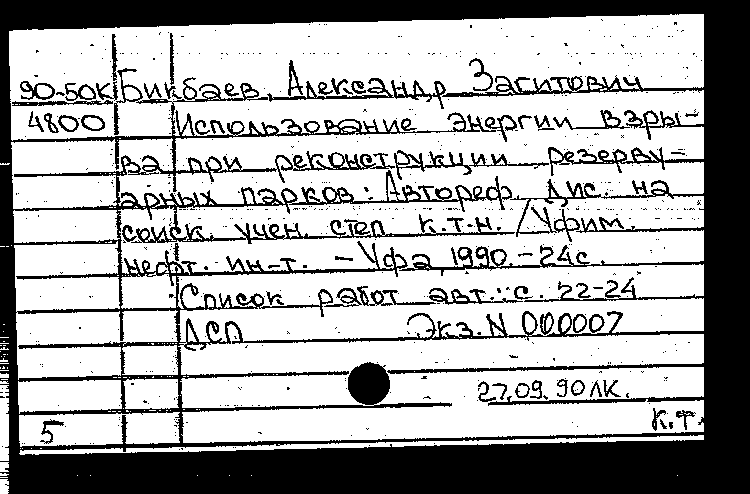 90-50К Бикбаев, Александр Загитович
4800 Использование энергии взры-
ва при реконструкции резерву-
арных парков: Автореф. дис. на
соиск. учен. степ. к.т.н. /Уфим.
нефт. ин-т. - Уфа, 1990. - 24с.
Список работ авт.: с. 22-24
ДСП Экз. N 000007
27.09.90 ЛК.
5 К.Ф.